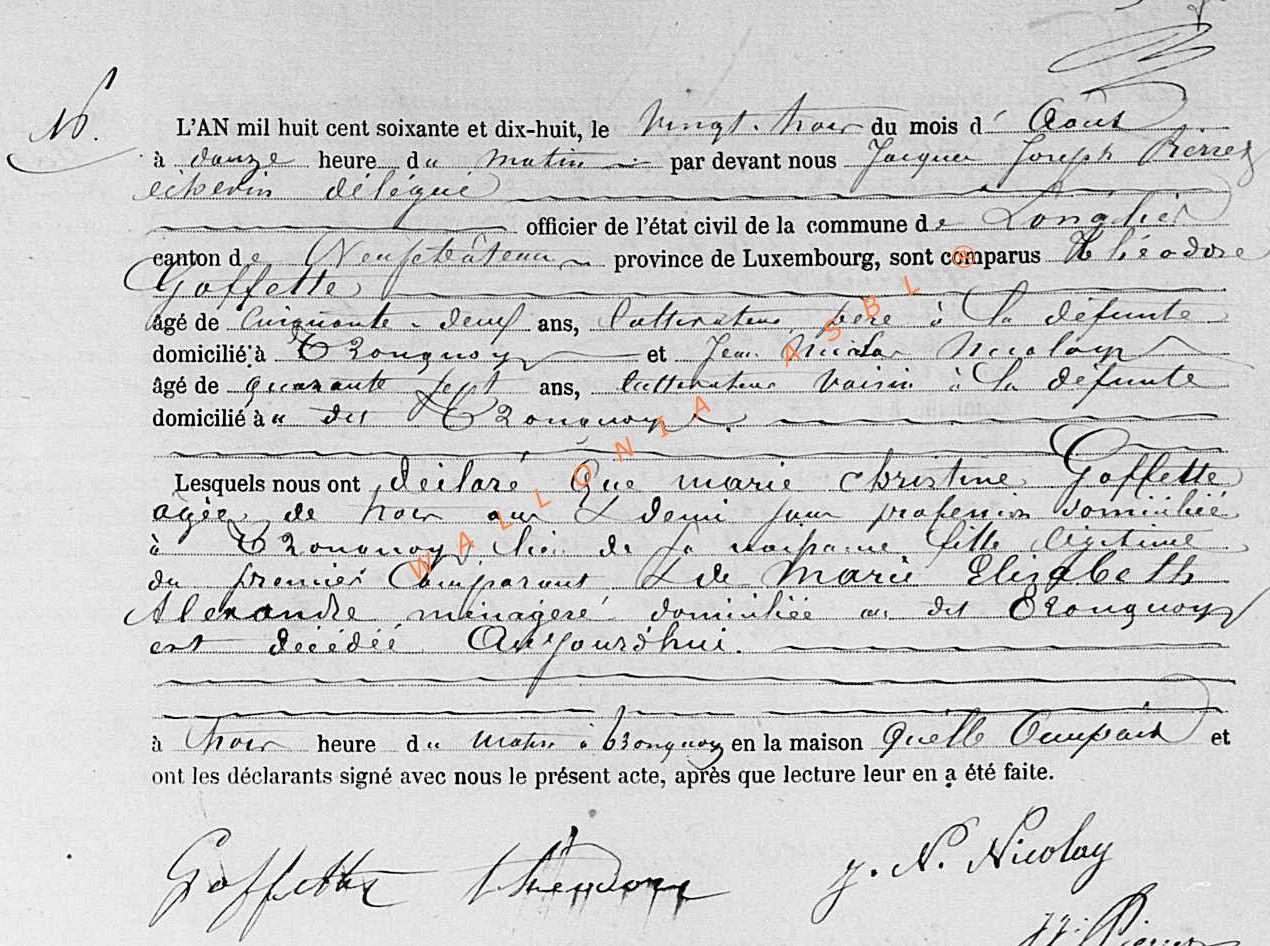 N.
L'AN mil huit cent soixante et dix-huit, le Vingt-trois du mois d' Août
à douze heure du matin par devant nous Jacques Joseph Pierret
échevin délégué
officier de l'état civil de la commune de Longlier
canton de Neufchâteau province de Luxembourg, sont comparus Théodore
Goffette
âgé de Cinquante-deux ans, Cultivateur père à la défunte
domicilié à Tronquoy et Jean Nicolas Nicolay
âgé de quarante sept ans, Cultivateur voisin à la défunte
domicilié à u dit Tronquoy.
Lesquels nous ont déclaré Que marie Christine Goffette
agée de trois ans & demi sans profession domiciliée
à Tronquoy lieu de sa naissance fille légitime
du premier Comparant & de Marie Elisabeth
Alexandre ménagère domiciliée au dit Tronquoy
est décédée Aujourd'hui.
à trois heure du matin à tronquoy en la maison Qu'elle Occupait et
ont les déclarants signé avec nous le présent acte, après que lecture leur en a été faite.
Goffette théodore
J. N. Nicolay
J J Pierret
WALLONIA ASBL ®